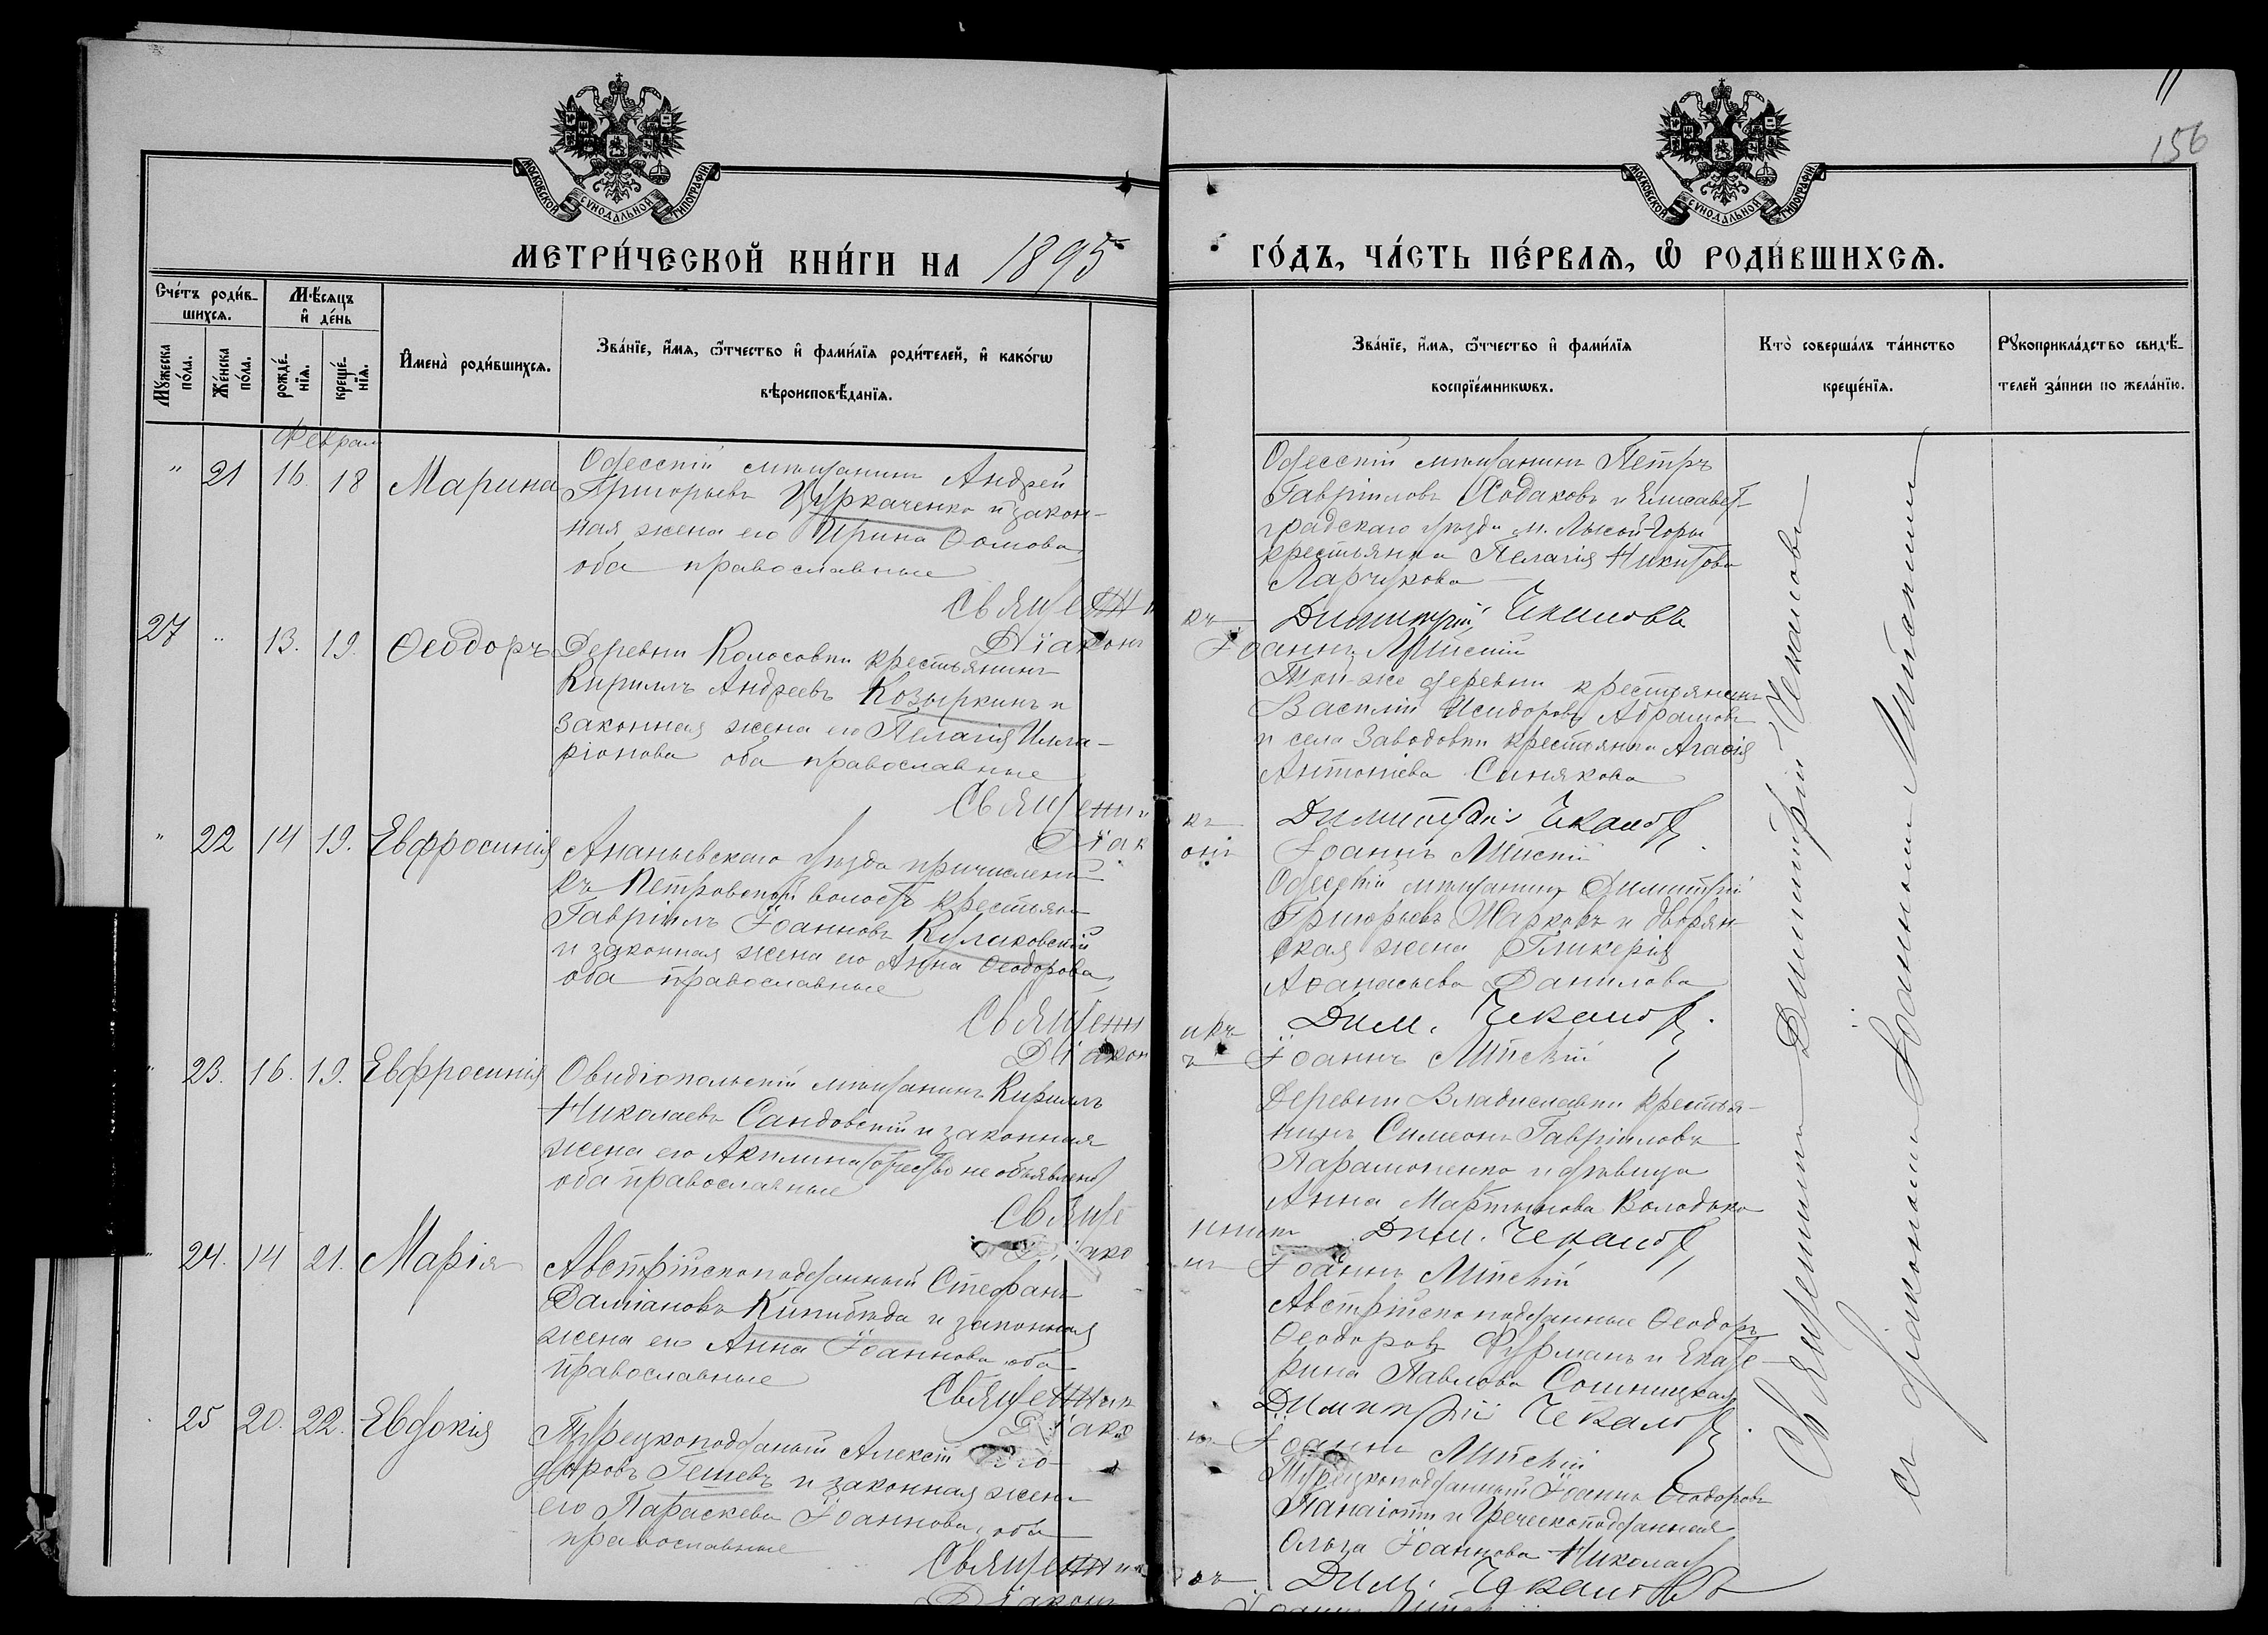 11
156
МОСКОВСКОЙ СѴНОДАЛЬНОЙ ТИПОГРАФІИ
МОСКОВСКОЙ СѴНОДАЛЬНОЙ ТИПОГРАФІИ
МЕТРИ́ЧЕСКОЙ КНИ́ГИ НА 1895
ГО́ДЪ, ЧА́СТЬ ПЕ́РВАѦ, Ѡ҆ РОДИ́ВШИХСѦ.
Сче́тъ роди́в-
шихсѧ.
Мꙋ́жеска
по́ла.
Же́нска
по́ла.
Мѣ́сѧцъ
и҆ де́нь
рожде́-
нїѧ.
креще́-
нїѧ.
И҆мена̀ роди́вшихсѧ.
Зва́нїе, и҆́мѧ, ѻ҆́тчество и҆ фами́лїѧ роди́телей, и҆ како́гѡ
вѣроисповѣ́данїѧ.
Зва́нїе, и҆́мѧ, ѻ҆́тчество и҆ фами́лїѧ
воспрїе́мникѡвъ.
Кто̀ соверша́лъ та́инство
креще́нїѧ.
Рꙋкоприкла́дство свидѣ́-
телей за́писи по жела́нїю.
Феврал
" 21 16. 18 Марина
Одесскій мѣщанинъ Андрей
Григорьевъ Цуркаченко и закон-
ная жена его Ирина Ѳомова
оба православные
Одесскій мѣщанинъ Петръ
Гавріиловъ Ходаковъ и Елисавет-
градскаго уѣзда м. Лысой-Горы
крестьянка Пелагія Никитова
Ларчикова
Священникъ Димитрій Чекановъ
Діаконъ Іоаннъ Мпискій
27 " 13. 19. Ѳеодоръ
Деревни Колосовки крестьянинъ
Кириллъ Андреевъ Козыркинъ и
законная жена его Пелагія Илла-
ріонова оба православные
Той-же деревни крестьянинъ
Василій Исидоровъ Абрамовъ
и села Заводовки крестьянка Агаѳія
Антоніева Синякова
Священникъ Димитрій Чекановъ
Діаконъ Іоаннъ
" 22 14 19. Евфросинія
Ананьевскаго уѣзда причислений
къ Петровской волости крестьян
Гавріилъ Іоанновъ Кулаковскій
и законная жена его Анна Ѳеодорова
оба православные
Одесскій мѣщанинъ Димитрій
Григорьевъ Марковъ и дворян-
ская жена Гликерія
Аѳанасьева Данилова
Священникъ Дим. Чекановъ
Діаконъ Іоаннъ
" 23. 16. 19. Евфросинія
Овидіопольскій мѣщанинъ Кириллъ
Николаевъ Сандовскій и законная
жена его Акилина (отчество не объявлено)
оба православные
Деревни Владиславки крестья-
нинъ Симеонъ Гавріиловъ
Парамоненко и дѣвица
Анна Мартынова Володько
Священникъ Дим. Чекановъ
Діаконъ Іоаннъ
" 24. 14 21. Марія
Австрійскоподданный Стефанъ
Даміановъ и законная
жена его Анна Іоаннова оба
православные
Австрійско подданные Ѳеодоръ
Ѳеодоровъ Фурманъ и Екате-
рина Павлова
Священникъ Димитрій Чекановъ
Діаконъ Іоаннъ
25 20. 22. Евдокія
Турецкоподданный Алексій Ѳео-
доровъ Гешевъ и законная жена
его Параскева Іоаннова, оба
православные
Турецкоподданный Іоаннъ Ѳеодоровъ
Панаіоти и Греческоподданная
Ольга Іоаннова
Священникъ Дим. Чекановъ
Діаконъ Іоаннъ
Священникъ Димитрій Чекановъ
съ діакономъ Іоанномъ